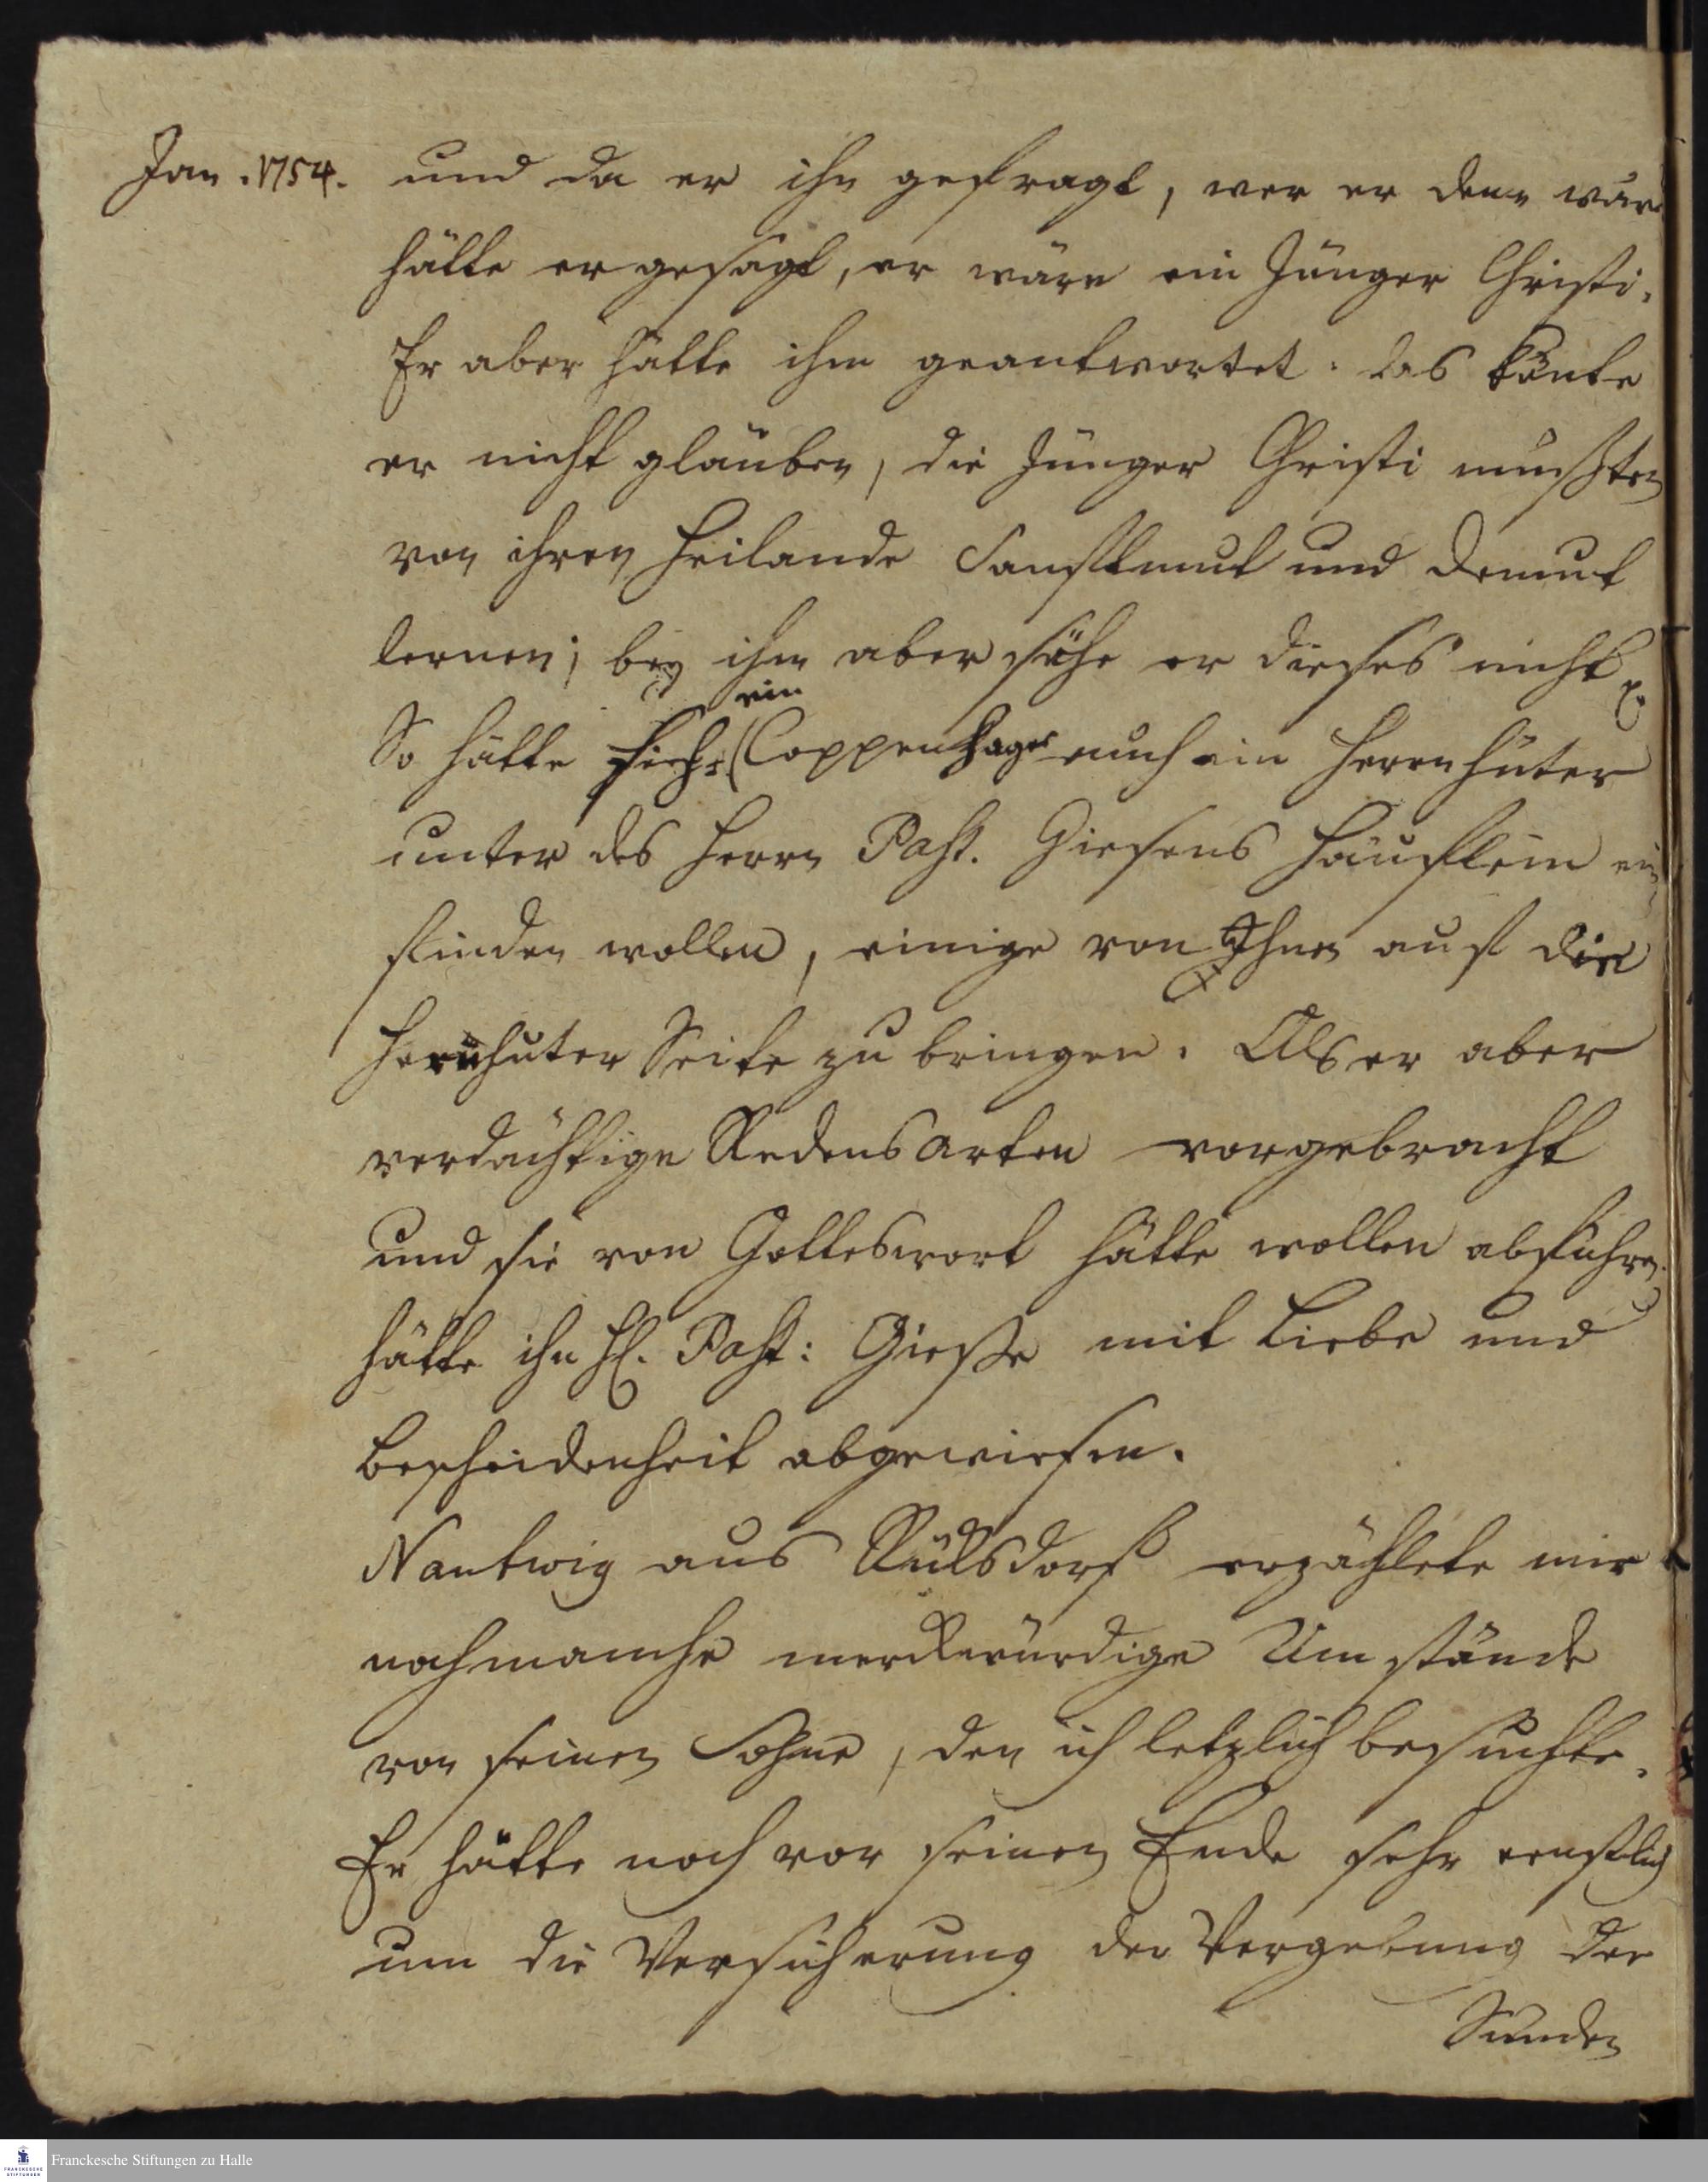 Jan. 1754. und da er ihn gefragt, wer er denn wäre
hätte er gesagt, er wäre ein Jünger Christi.
Er aber hätte ihm geantwortet: das könte
er nicht glauben, die Jünger Christi müsten
von ihren Heilande Sanftmut und Demut
lernen; bey ihm aber sähe er dieses nicht
ein
So hätte sich Coppenhager auch ein Herrnhuter
unter des Herrn Past. Giesens Häuflein ein
finden wollen, einige von Ihnen auf die
Herrnhuter Seite zu bringen. Als er aber
verdächtige Redensarten vorgebracht
und sie von Gotteswort hätte wollen abführen.
hätte ihn H. Past: Giese mit Liebe und
Bescheidenheit abgewiesen.
Nantwig aus Rulsdorf erzählete mir
noch manche merckwürdige Umstände
von seinen Sohne, den ich letzlich besuchte.
Er hätte noch vor seinen Ende sehr ernstlich
um die Versicherung der Vergebung der
Sünden
Franckesche Stiftungen zu Halle